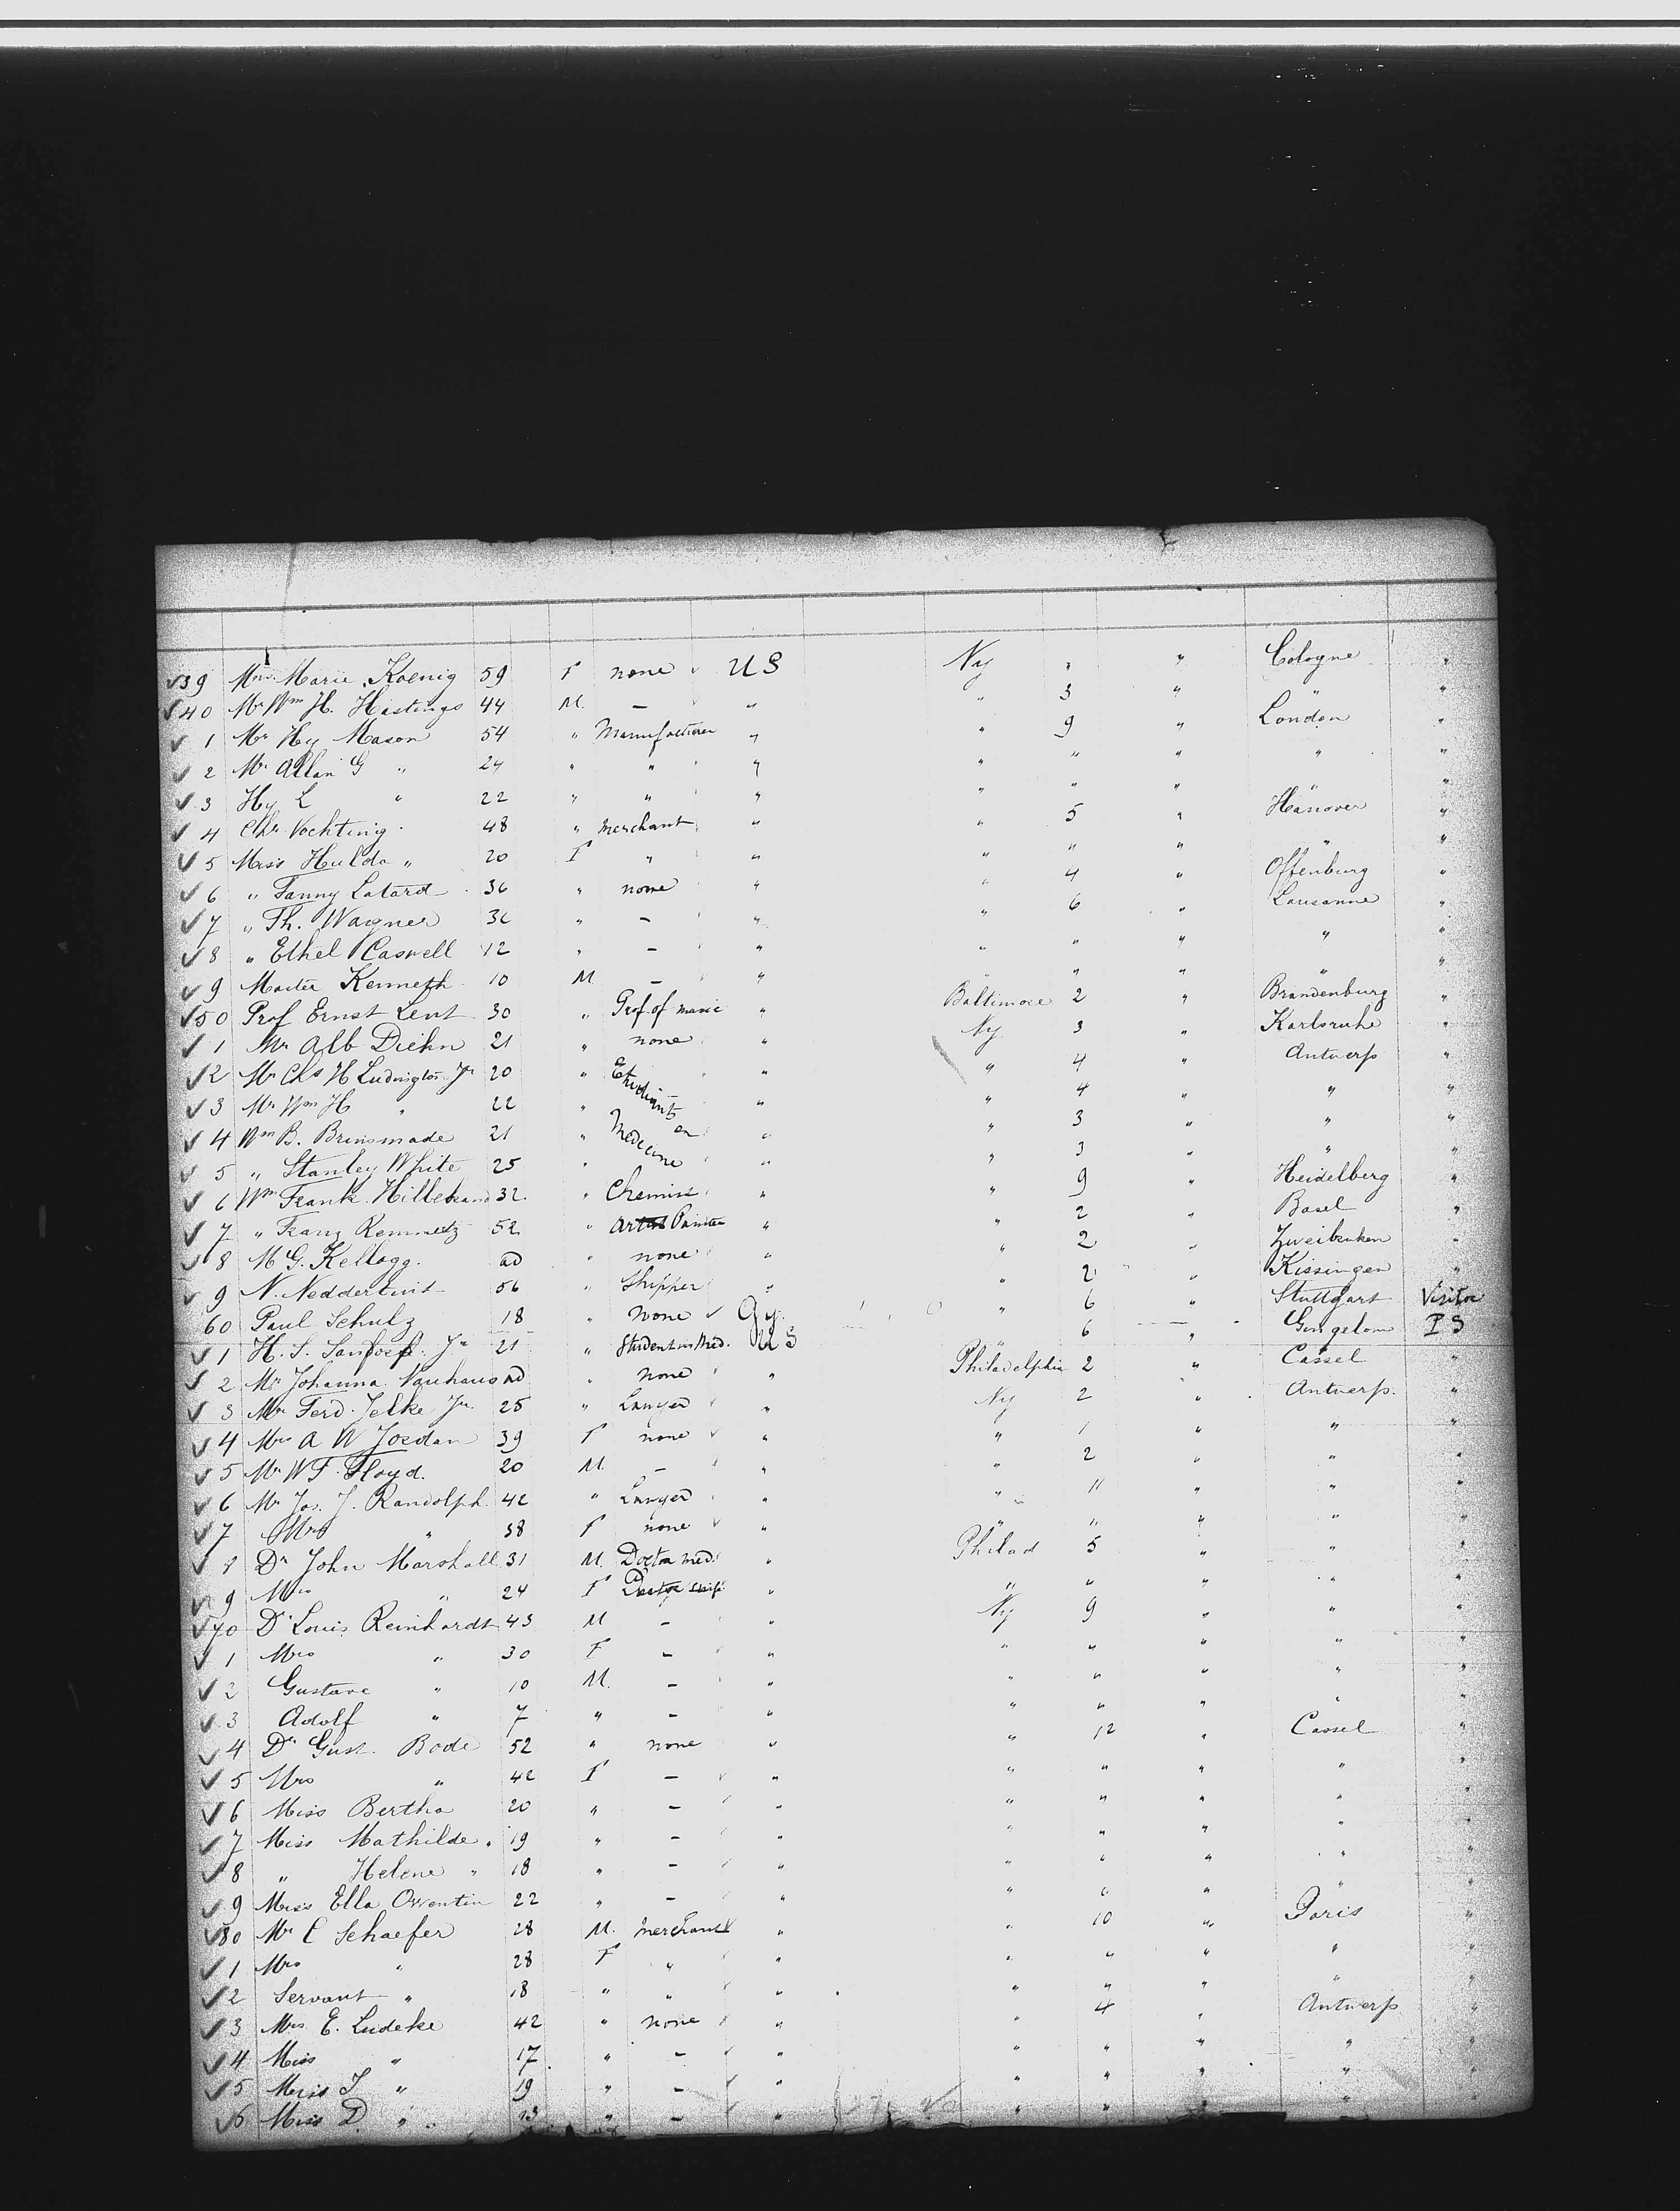 39 Mrs. Marie Koenig 59 F none US Ny " " Cologne "
40 Mr Wm H. Hastings 44 M. — " " 3 " " "
1 Mr Hy Mason 54 " Manufacturer " " 9 " London "
2 Mr Allan G " 24 " " " " " " " "
3 Hy L " 22 " " " " " " " "
4 Chr. Vochting 48 " Merchant " " 5 " Hanover "
5 Miss Hulda " 20 F " " " " " " "
6 " Fanny Latard 36 " none " " 4 " Offenburg "
7 " Th. Wagner 32 " — " " 6 " Lausanne "
8 " Ethel Caswell 12 " — " " " " " "
9 Master Kenneth 10 M — " " " " " "
50 Prof Ernst Lent 30 " Prof. of music " Baltimore 2 " Brandenburg "
1 Mr Alb Diehn 21 " none " Ny 3 " Karlsruhe "
2 Mr Chs H Ludington Jr 20 " Etudiants " " 4 " Antwerp "
3 Mr Wm H " 22 " " " 4 " " "
4 Wm B. Brinsmade 21 " en " " 3 " " "
5 " Stanley White 25 " Medecine " " 3 " " "
6 Wm Frank Hillebrand 32 " Chemist " " 9 " Heidelberg "
7 " Franz Remmetz 52 " Artist Painter " " 2 " Basel "
8 M G. Kellogg. ad " none " " 2 " Zweibruken "
9 N. 56 " Shipper " " 2 " Kissingen "
60 Paul Schulz 18 " none Gy. " 6 " Stuttgart Visitor
1 H. S. Sanford Jr 21 " Student in Med. US " 6 " PS
2 Mr Johanna Nauhaus ad " none " Philadelphia 2 " Cassel "
3 Mr Ferd. Jelke Jr. 25 " Lawyer " Ny 2 " Antwerp. "
4 Mrs A W Jordan 39 F none " " 1 " " "
5 Mr W F. Floyd. 20 M. — " " 2 " " "
6 Mr Jos. J. Randolph. 42 " Lawyer " " 11 " " "
7 Mrs " 38 F none " " " " " "
8 Dr John Marshall 31 M. Doctor med. " Philad 5 " " "
9 Mrs " 24 F " " " " " "
70 Dr Louis Reinhardt 43 M — " Ny 9 " " "
1 Mrs " 30 F — " " " " " "
2 Gustave " 10 M. — " " " " " "
3 Adolf " 7 " — " " " " " "
4 Dr Gust. Bode 52 " none " " 12 " Cassel "
5 Mrs " 42 F — " " " " " "
6 Miss Bertha 20 " — " " " " " "
7 Miss Mathilde " 19 " — " " " " " "
8 " Helene " 18 " — " " " " " "
9 Miss Ella 22 " — " " " " " "
80 Mr C Schaefer 28 M. Merchant " " 10 " Paris "
1 Mrs " 28 F " " " " " " "
2 Servant " 18 " " " " " " " "
3 Mrs E. Ludeke 42 " none " " 4 " Antwerp "
4 Miss " 17 " — " " " " " "
5 Miss " 19 " — " " " " "
6 Miss D. " 13 " — " " " " "